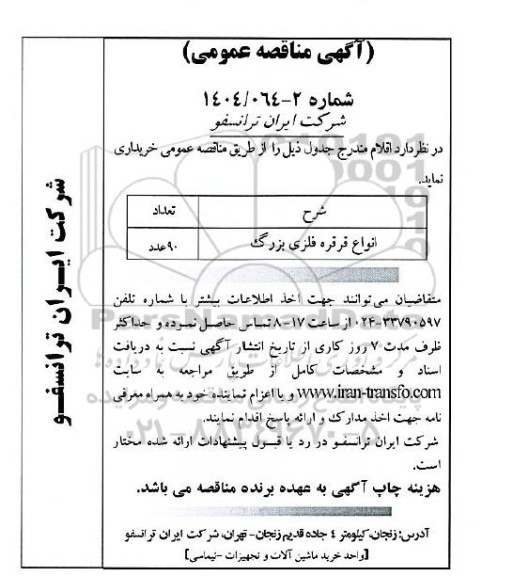 (آگهی مناقصه عمومی)
شماره ۲-۱۴۰۴/۰۶۴
شرکت ایران ترانسفو
در نظردارد اقلام مندرج جدول ذیل را از طریق مناقصه عمومی خریداری
نماید.
شرح تعداد
انواع قرقره فلزی بزرگ ۹۰عدد
متقاضیان می‌توانند جهت اخذ اطلاعات بیشتر با شماره تلفن
۰۲۴-۳۳۷۹۰۵۹۷ از ساعت ۱۷-۸ تماس حاصل نموده و حداکثر
ظرف مدت ۷ روز کاری از تاریخ انتشار آگهی نسبت به دریافت
اسناد و مشخصات کامل از طریق مراجعه به سایت
www.iran-transfo.com و یا اعزام نماینده خود به همراه معرفی
نامه جهت اخذ مدارک و ارائه پاسخ اقدام نمایند.
شرکت ایران ترانسفو در رد یا قبول پیشنهادات ارائه شده مختار
است.
هزینه چاپ آگهی به عهده برنده مناقصه می باشد.
آدرس: زنجان، کیلومتر ٤ جاده قدیم زنجان- تهران، شرکت ایران ترانسفو
[واحد خرید ماشین آلات و تجهیزات -نیماسی]
شرکت ایـران ترانسفـو
ParsNamadData
۰۲۱-۸۸۳۴۹۶۷۰-۵